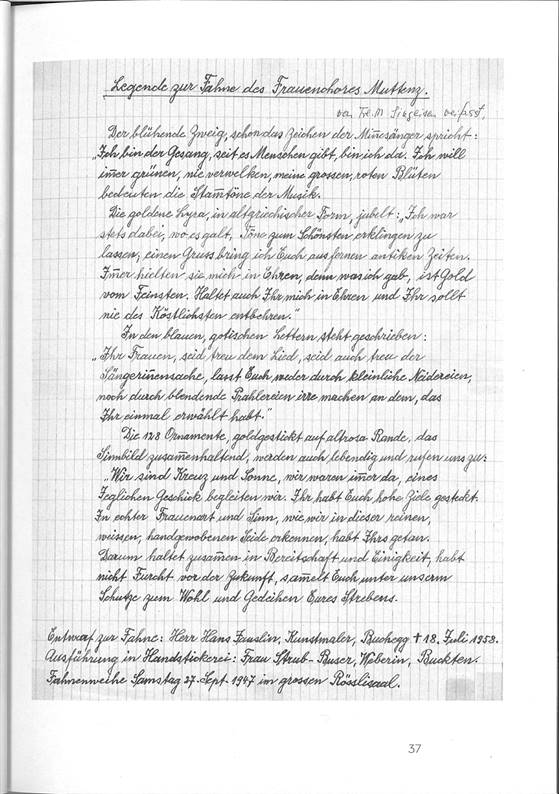 Legende zur Fahne des Frauenchores Muttenz.
von Frl. M verfasst.
Der blühende Zweig, schon das Zeichen der Miñesänger spricht:
"Ich bin der Gesang, seit es Menschen gibt, bin ich da. Ich will
im̄er grünen, nie verwelken, meine grossen, roten Blüten
bedeuten die Stam̄töne der Musik.
Die goldene Lyra, in altgriechischer Form, jubelt: "Ich war
stets dabei, wo es galt, Töne zum Schönsten erklingen zu
lassen, einen Gruss bring ich Euch aus fernen antiken Zeiten.
Im̄er hielten sie mich in Ehren, denn was ich gab, ist Gold
vom Feinsten. Haltet auch Ihr mich in Ehren und Ihr sollt
nie des Köstlichsten entbehren."
In den blauen, gotischen Lettern steht geschrieben:
"Ihr Frauen, seid treu dem Lied, seid auch treu der
Sängeriñensache, lasst Euch weder durch kleinliche Neidereien,
noch durch blendende Prahlereien irre machen an dem, das
Ihr einmal erwählt habt."
Die 128 Ornamente, goldgestickt auf altrosa Rande, das
Sinnbild zusam̄enhaltend, werden auch lebendig und rufen uns zu:
"Wir sind Kreuz und Sonne, wir waren im̄er da, eines
Jeglichen Geschick begleiten wir. Ihr habt Euch hohe Ziele gesteckt.
In echter Frauenart und Sinn, wie wir in dieser reinen,
weissen, handgewobenen Seide erkennen, habt Ihrs getan.
Darum haltet zusam̄en in Bereitschaft und Einigkeit, habt
nicht Furcht vor der Zukunft, sam̄elt Euch unter unserm
Schutze zum Wohl und Gedeihen Eures Strebens.
Entwurf zur Fahne: Herr Hans Jauslin, Kunstmaler, Buchegg † 18. Juli 1958.
Ausführung in Handstickerei: Frau Strub-Buser, Weberin, Buckten.
Fahnenweihe Samstag 27. Sept. 1947 im grossen Rösslisaal.
37